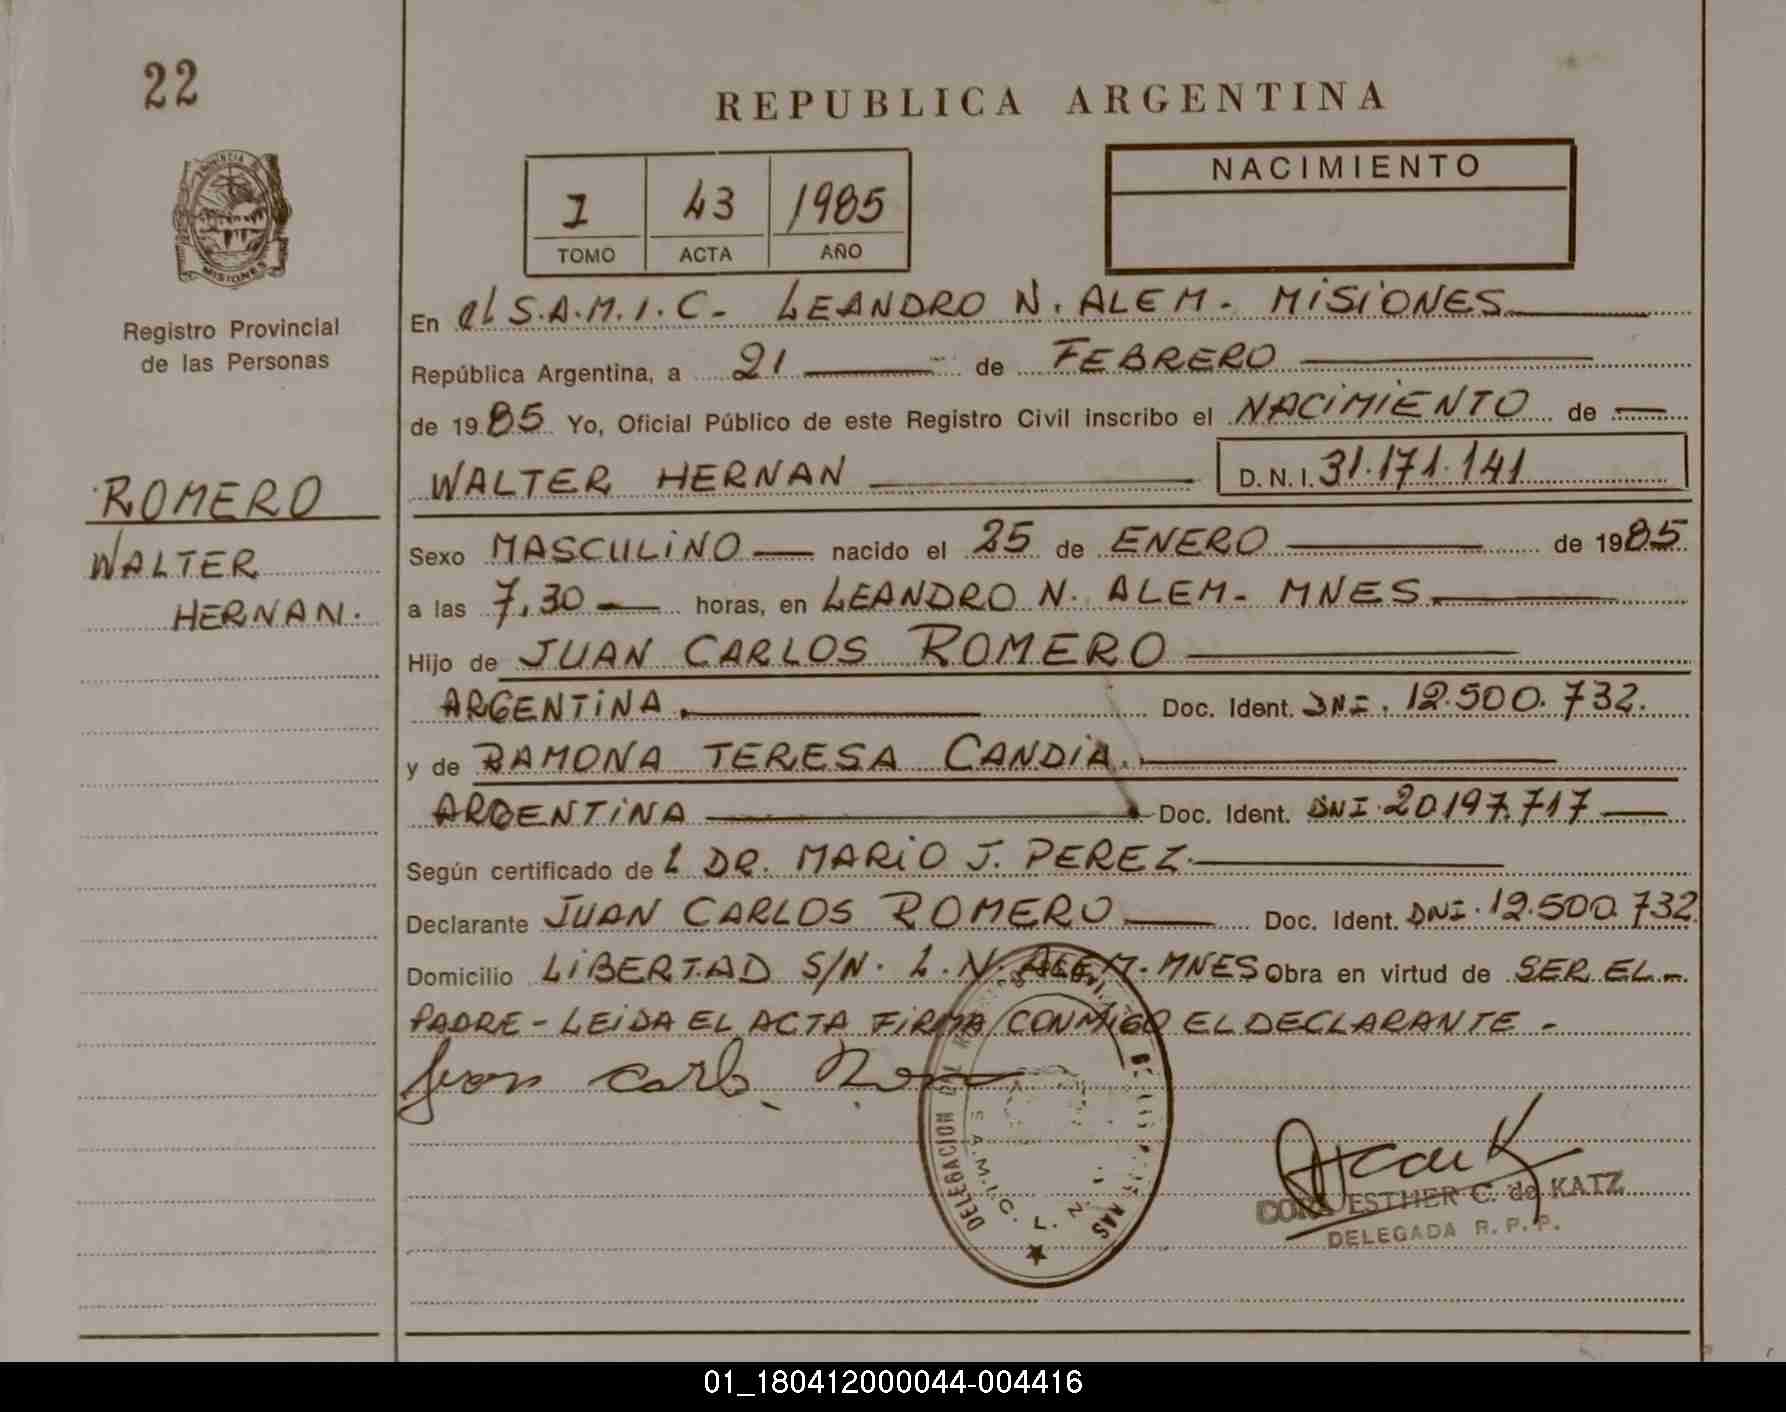 22
REPUBLICA ARGENTINA
NACIMIENTO
I 43 1985
TOMO ACTA AÑO
PROVINCIA DE
MISIONES
Registro Provincial
de las Personas
ROMERO
WALTER
HERNAN.
En el S.A.M.I.C- LEANDRO N. ALEM- MISIONES
República Argentina, a 21 de FEBRERO
de 1985 Yo, Oficial Público de este Registro Civil inscribo el NACIMIENTO de
WALTER HERNAN D.N.I. 31.171.141
Sexo MASCULINO nacido el 25 de ENERO de 1985
a las 7,30 horas, en LEANDRO N. ALEM- MNES
Hijo de JUAN CARLOS ROMERO
ARGENTINA. Doc. Ident. DNI. 12.500.732.
y de RAMONA TERESA CANDIA.
ARGENTINA Doc. Ident. DNI.20197.717
Según certificado de L DR. MARIO J. PEREZ.
Declarante JUAN CARLOS ROMERO Doc. Ident. DNI.12.500.732
Domicilio LIBERTAD S/N. L.N. ALEM-MNES Obra en virtud de SER EL-
PADRE-LEIDA EL ACTA FIRMA CONMIGO EL DECLARANTE-
Juan Carlo Rome
DELEGACION DEL
S.A.M.I.C. L. N.
ESTHER C. de KATZ
DELEGADA R.P.P.
01_180412000044-004416